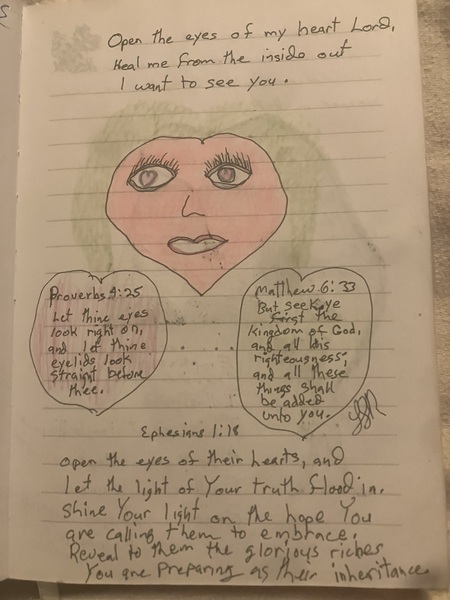 Open the eyes of my heart Lord,
Heal me from the inside out
I want to see you.
Proverbs 4:25
Let thine eyes
look right on,
and let thine
eyelids look
straint before
thee.
Matthew 6:33
But seek ye
first the
kingdom of God,
and all his
righteousness;
and all these
things shall
be added
unto you.
Ephesians 1:18
open the eyes of their hearts, and
let the light of Your truth flood in.
Shine Your light on the hope You
are calling them to embrace.
Reveal to them the glorious riches
You are preparing as their inheritance.